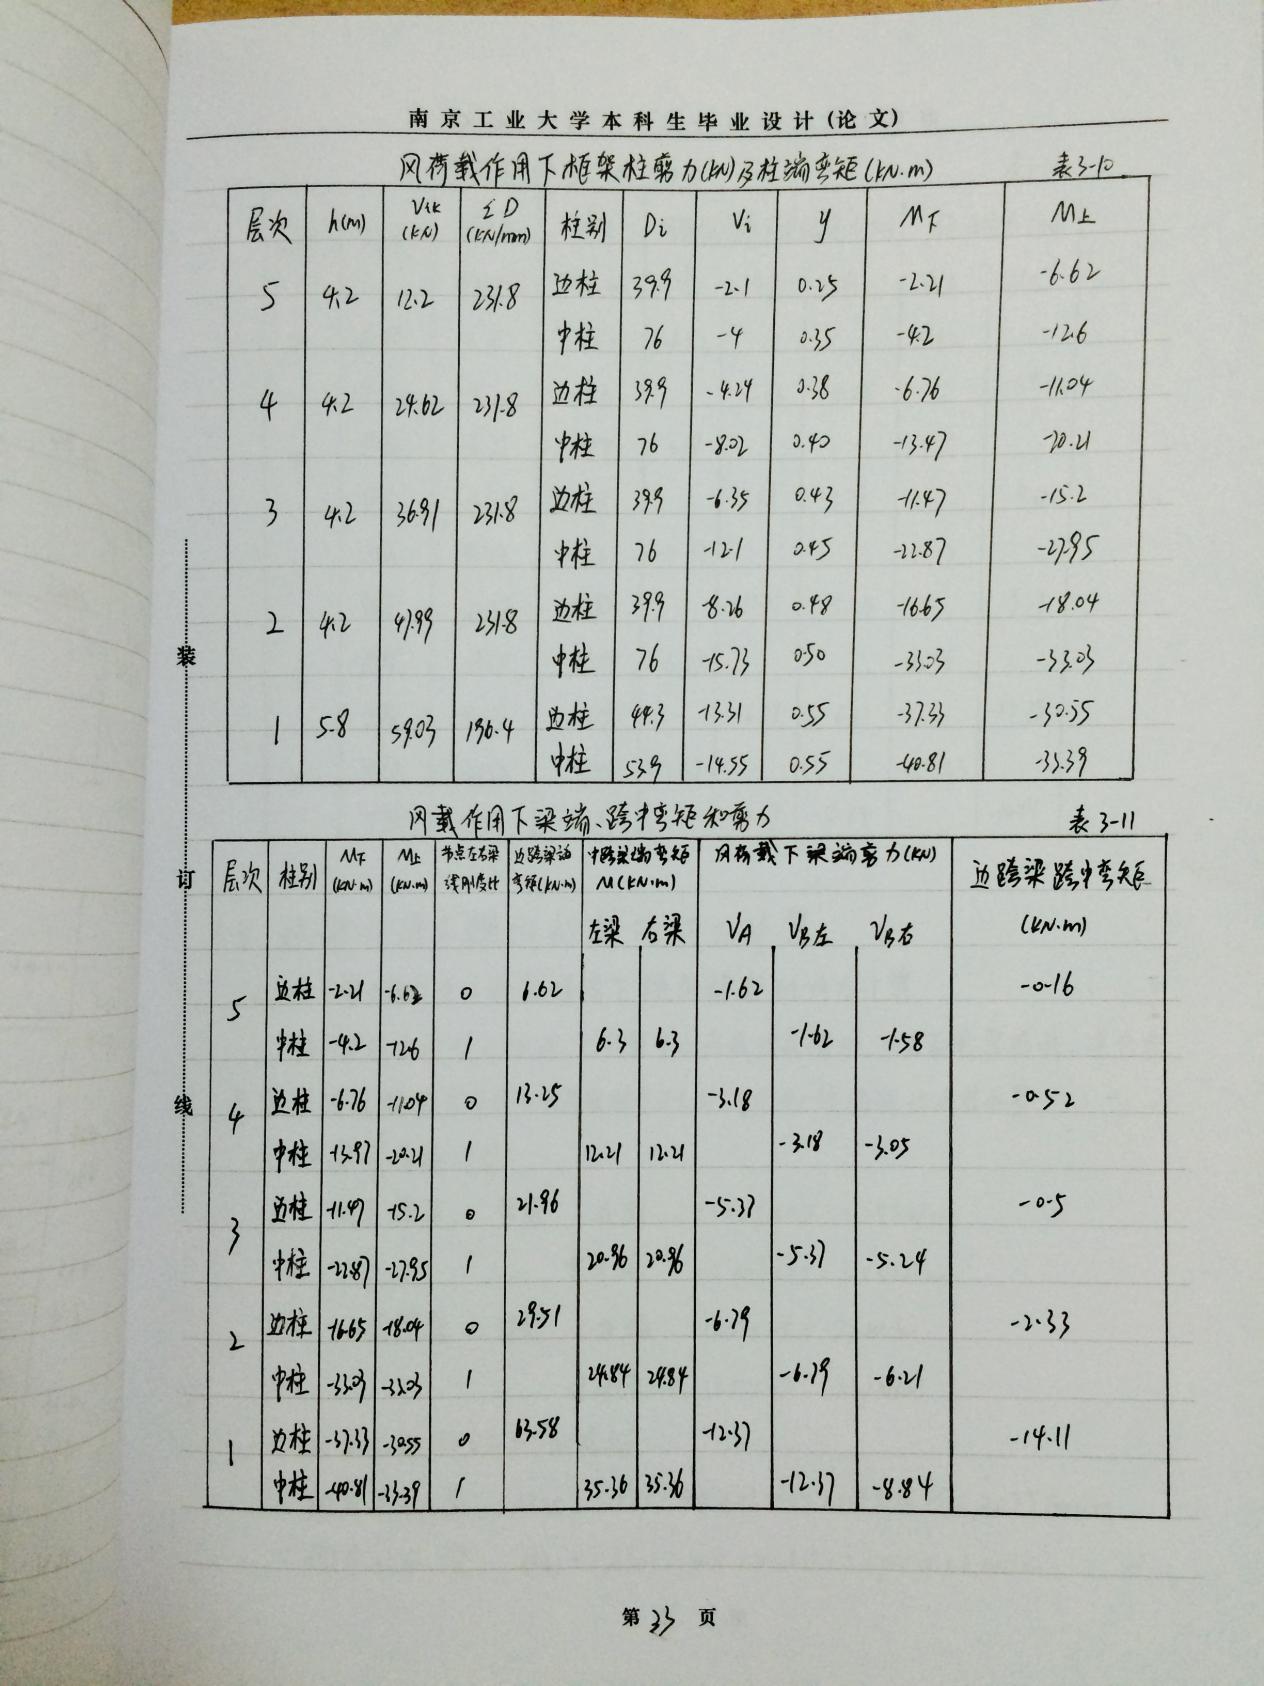 南京工业大学本科生毕业设计(论文)
风荷载作用下框架柱剪力(KN)及柱端弯矩(KN·m) 表3-10
层次 h(m) Vik(KN) ΣD(KN/mm) 柱别 Di Vi y M下 M上
5 4.2 12.2 231.8 边柱 39.9 -2.1 0.25 -2.21 -6.62
中柱 76 -4 0.35 -4.2 -12.6
4 4.2 24.62 231.8 边柱 39.9 -4.24 0.38 -6.76 -11.04
中柱 76 -8.02 0.40 -13.47 -20.21
3 4.2 36.91 231.8 边柱 39.9 -6.35 0.43 -11.47 -15.2
中柱 76 -12.1 0.45 -22.87 -27.95
2 4.2 47.99 231.8 边柱 39.9 -8.26 0.48 -16.65 -18.04
中柱 76 -15.73 0.50 -33.03 -33.03
1 5.8 59.03 196.4 边柱 44.3 -13.31 0.55 -37.33 -30.55
中柱 53.9 -14.55 0.55 -40.81 -33.39
风载作用下梁端、跨中弯矩和剪力 表3-11
层次 柱别 M下(KN·m) M上(KN·m) 节点左右梁线刚度比 边跨梁端弯矩(KN·m) 中跨梁端弯矩M(KN·m) 风荷载下梁端剪力(KN) 边跨梁跨中弯矩(KN·m)
左梁 右梁 VA VB左 VB右
5 边柱 -2.21 -6.62 0 6.62 -1.62 -0.16
中柱 -4.2 -12.6 1 6.3 6.3 -1.62 -1.58
4 边柱 -6.76 -11.04 0 13.25 -3.18 -0.52
中柱 -13.97 -20.21 1 12.21 12.21 -3.18 -3.05
3 边柱 -11.47 -15.2 0 21.96 -5.37 -0.5
中柱 -22.87 -27.95 1 20.96 20.96 -5.37 -5.24
2 边柱 -16.65 -18.04 0 29.51 -6.79 -2.33
中柱 -33.03 -33.03 1 24.84 24.84 -6.79 -6.21
1 边柱 -37.33 -30.55 0 63.58 -12.37 -14.11
中柱 -40.81 -33.39 1 35.36 35.36 -12.37 -8.84
装
订
线
第33页